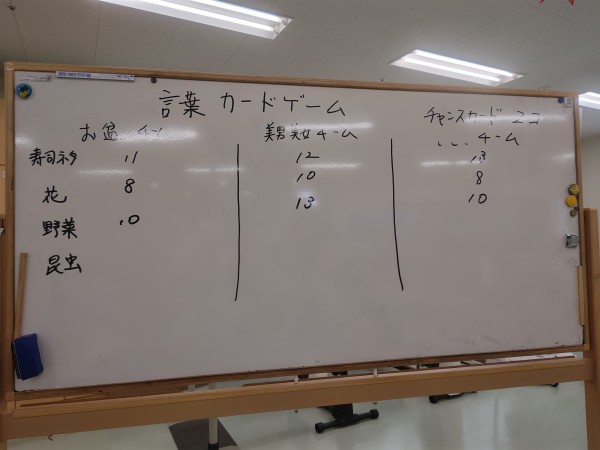 言葉 カードゲーム
チャンスカード 2コ
お盆
美男美女チーム
チーム
寿司ネタ 11 12 13
花 8 10 8
野菜 10 13 10
昆虫